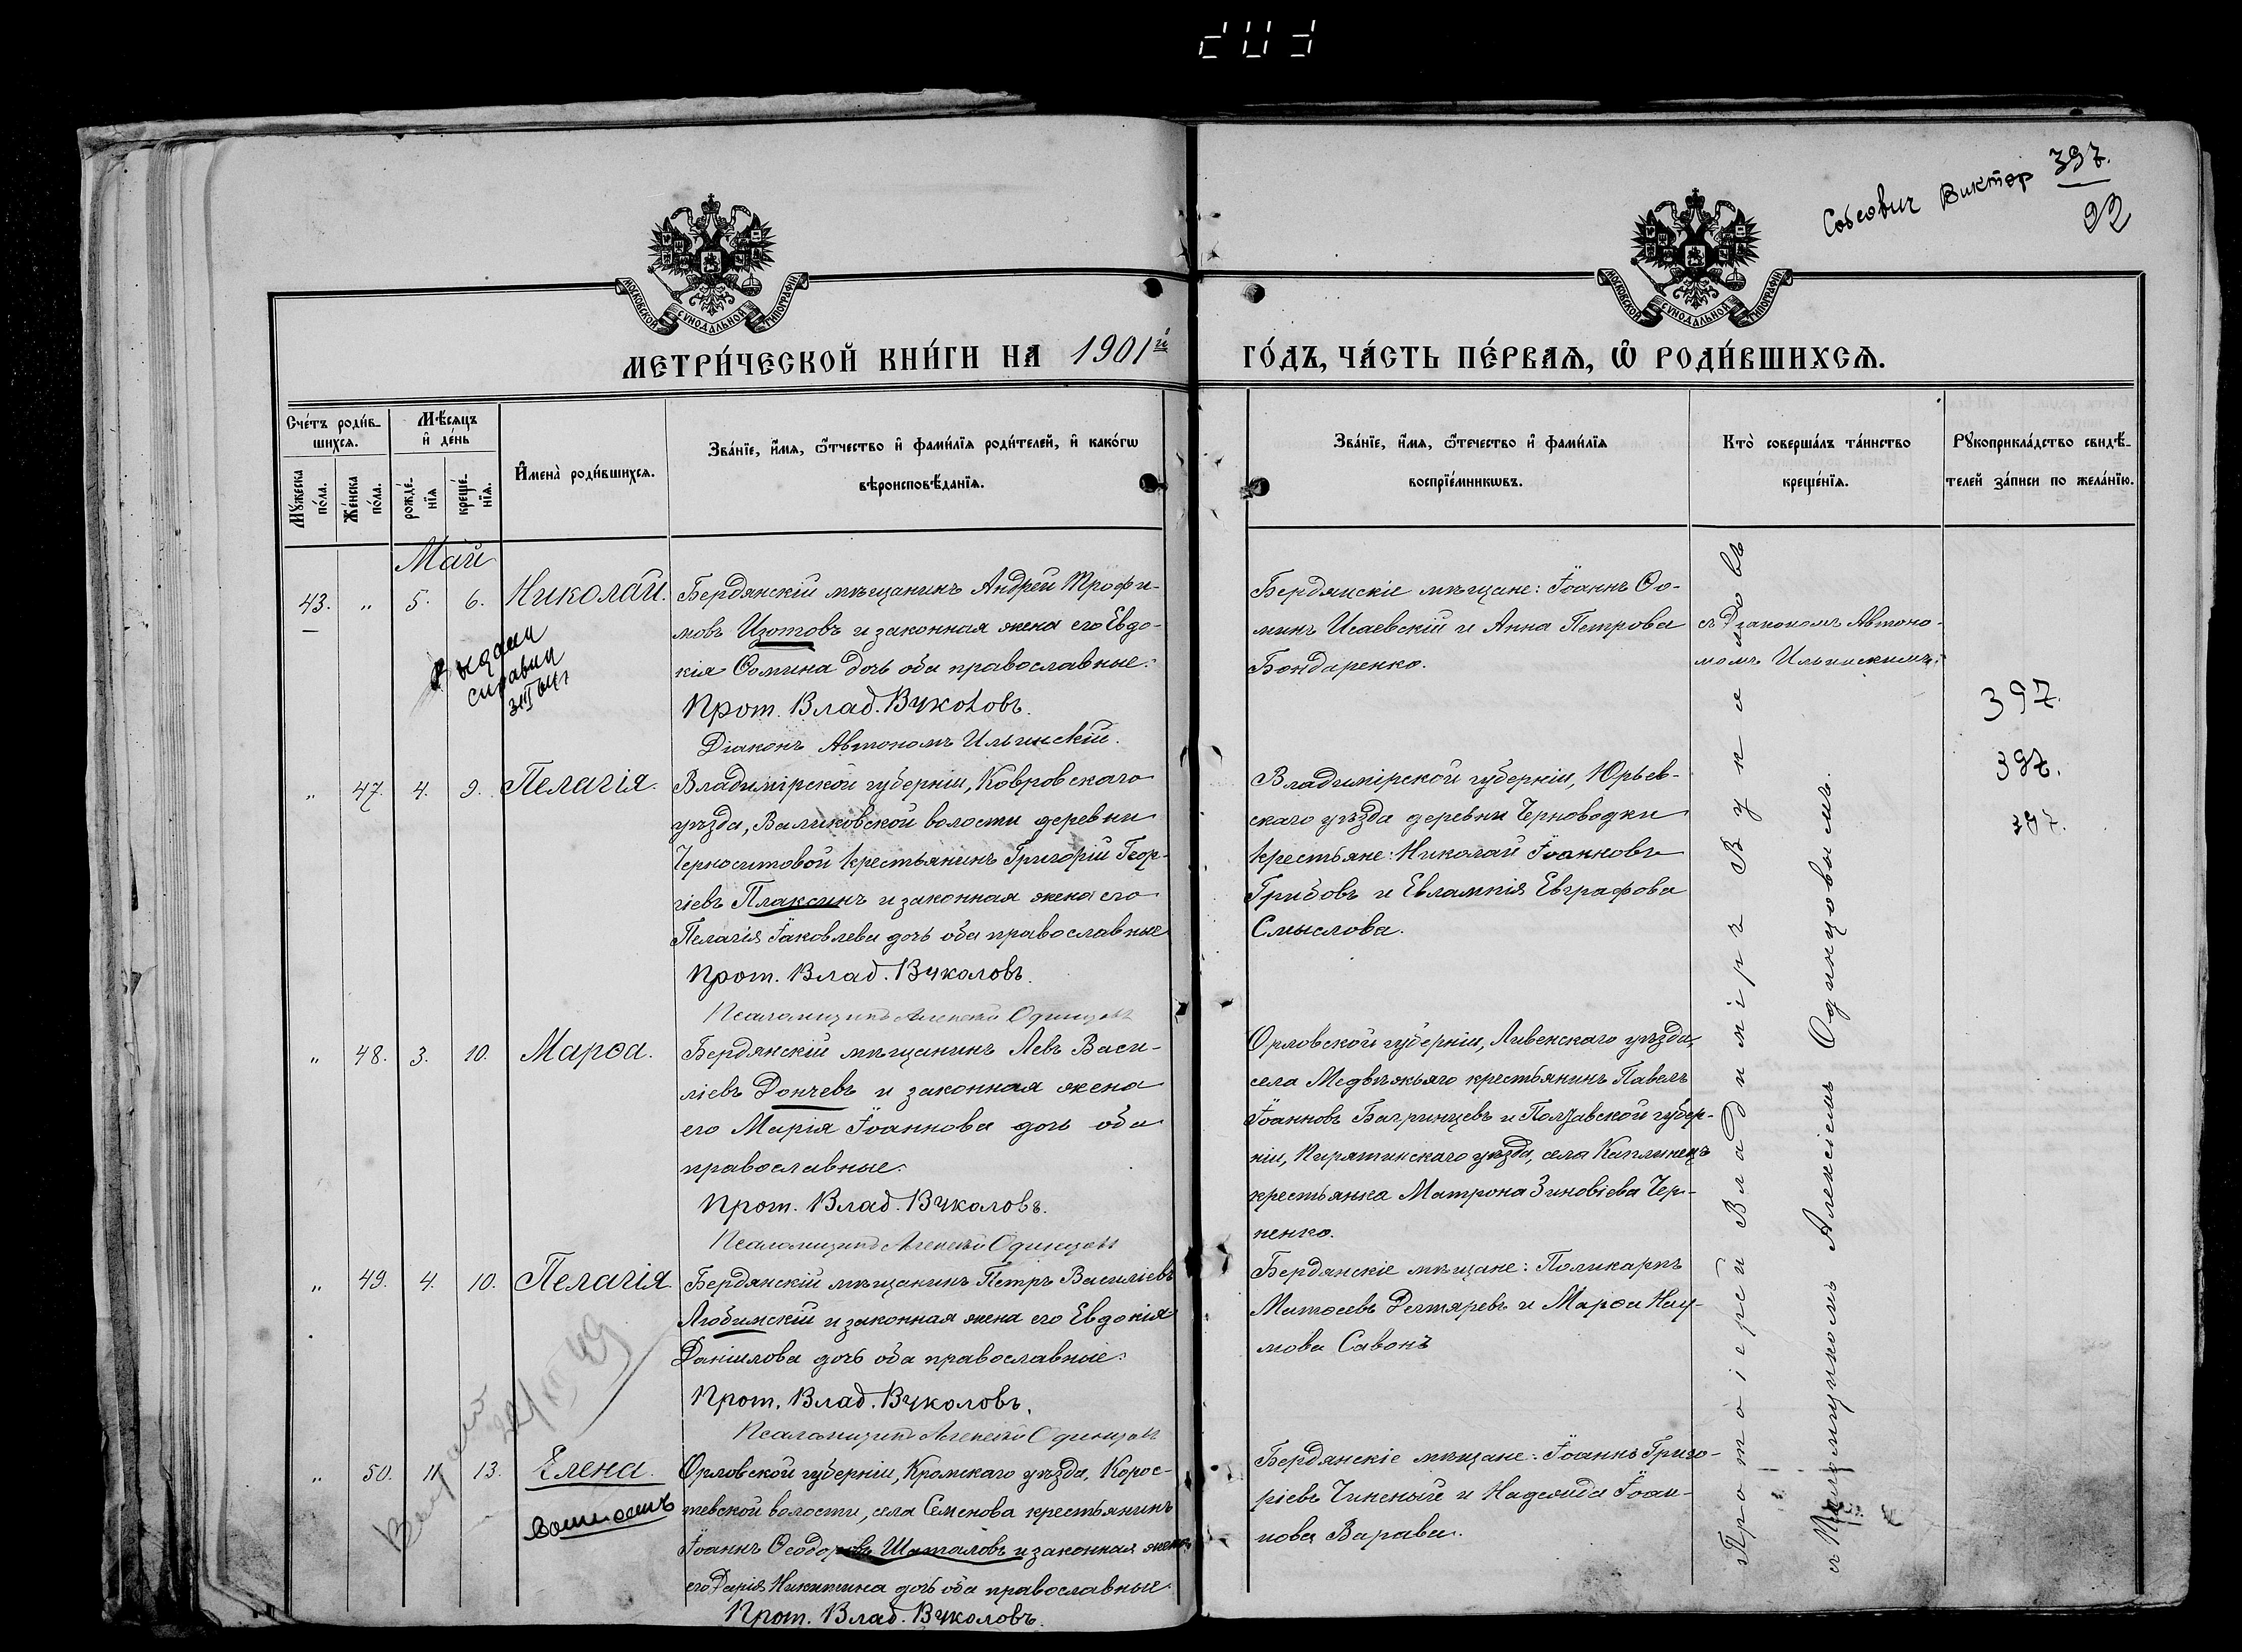 Собсович Виктор 397.
93
МОСКОВСКОЙ СѴНОДАЛЬНОЙ ТИПОГРАФІИ
МОСКОВСКОЙ СѴНОДАЛЬНОЙ ТИПОГРАФІИ
МЕТРИ́ЧЕСКОЙ КНИ́ГИ НА 1901й
ГО́ДЪ, ЧА́СТЬ ПЕ́РВАѦ, Ѡ҃ РОДИ́ВШИХСѦ.
Сче́тъ роди́в-
шихсѧ.
Мѣ́сѧцъ
и҆ де́нь
Мꙋ́жеска
по́ла.
Же́нска
по́ла.
рожде́-
нїѧ
креще́-
нїѧ.
И҆мена̀ роди́вшихсѧ.
Зва́нїе, и҆́мѧ, ѻ҆́тчество и҆ фами́лїѧ роди́телей, и҆ како́гѡ
вѣроисповѣ́данїѧ.
Зва́нїе, и҆́мѧ, ѻ҆те́чество и҆ фами́лїѧ
воспрїе́мникѡвъ.
Кто̀ соверша́лъ та́инство
креще́нїѧ.
Рꙋкоприкла́дство свидѣ́-
телей за́писи по жела́нїю.
Май
43. " 5. 6. Николай.
Бердянскій мѣщанинъ Андрей Трофи-
мовъ Изотовъ и законная жена его Евдо-
кія Ѳомина дочь оба православные.
Прот. Влад. Вуколовъ.
Діаконъ Автономъ Ильинскій.
Бердянскіе мѣщане: Іоаннъ Ѳо-
минъ Исаевскій и Анна Петрова
Бондаренко.
съ Діакономъ Автоно-
момъ Ильинскимъ;
397.
397.
397.
" 47. 4. 9. Пелагія.
Владимірской губерніи, Ковровскаго
уѣзда, Валиковской волости деревни
Черноситовой крестьянинъ Григорій Геор-
гіевъ Плаксинъ и законная жена его
Пелагія Іаковлева дочь оба православные
Прот. Влад. Вуколовъ.
Псаломщикъ Алексѣй Одинцовъ
Владимірской губерніи, Юрьев-
скаго уѣзда деревни Черноводки
крестьяне: Николай Іоанновъ
Грибовъ и Евлампія Евграфова
Смыслова.
" 48. 3. 10. Марѳа.
Бердянскій мѣщанинъ Левъ Васи-
ліевъ Дончевъ и законная жена
его Марія Іоаннова дочь оба
православные.
Прот. Влад. Вуколовъ.
Псаломщикъ Алексѣй Одинцовъ
Орловской губерніи, Ливенскаго уѣзда,
села Медвѣжьяго крестьянинъ Павелъ
Іоанновъ Багринцевъ и Полтавской губер-
ніи, Пирятинскаго уѣзда, села Каплинецъ
крестьянка Матрона Зиновіева Чер-
ненко.
" 49. 4. 10. Пелагія
Бердянскій мѣщанинъ Петръ Василіевъ
Любимскій и законная жена его Евдокія
Даніилова дочь оба православные.
Прот. Влад. Вуколовъ.
Псаломщикъ Алексѣй Одинцовъ
Бердянскіе мѣщане: Поликарпъ
Матѳеевъ Дегтяревъ и Марѳа Нау-
мова Савонъ
" 50. 11. 13. Елена.
Орловской губерніи, Кромскаго уѣзда, Корос-
тевской волости, села Семенова крестьянинъ
Іоаннъ Ѳеодоровъ Шаталовъ и законная жена
его Дарія Никитина дочь оба православные
Прот. Влад. Вуколовъ.
Бердянскіе мѣщане: Іоаннъ Григо-
ріевъ Чинсный и Надежда Іоан-
нова Варава.
Протоіерей Владиміръ Вуколовъ
съ Псаломщикомъ Алексѣемъ Одинцовымъ.